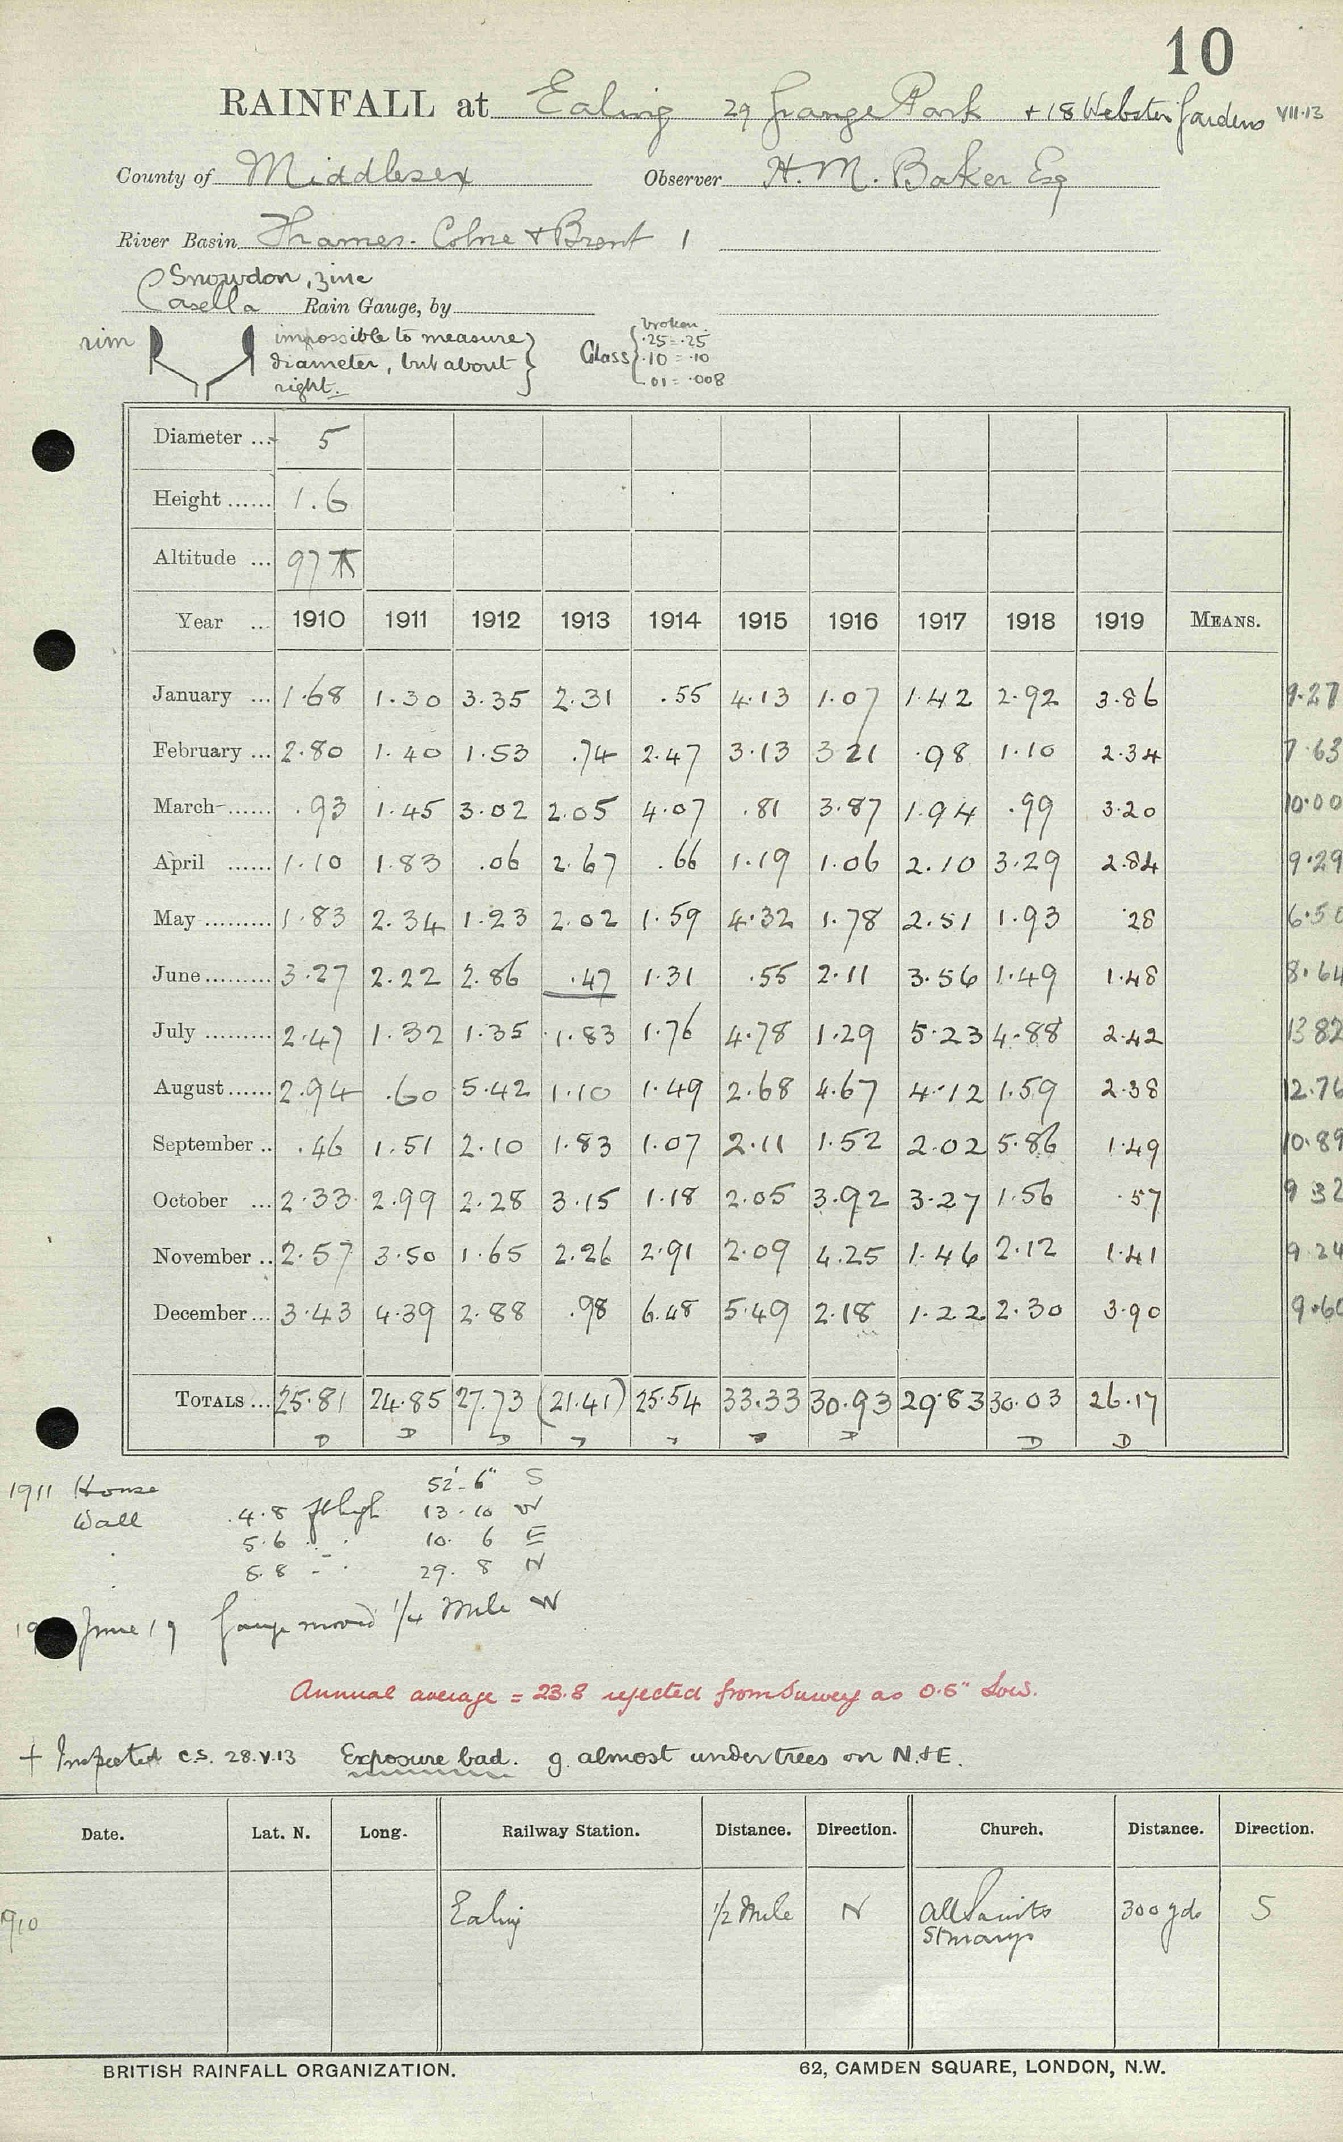 10
RAINFALL at Ealing 29 Grange Park + 18 Webster Gardens VII.13
County of Middlesex Observer H. M. Baker Esq
River Basin Thames. Colne & Brent 1
Snowdon, zinc
Casella Rain Gauge, by
rim impossible to measure diameter, but about right. Glass broken .25=.25 .10=.10 .01=.008
Diameter ... 5
Height ...... 1.6
Altitude ... 97
Year ... 1910 1911 1912 1913 1914 1915 1916 1917 1918 1919 MEANS.
January ... 1.68 1.30 3.35 2.31 .55 4.13 1.07 1.42 2.92 3.86 9.27
February ... 2.80 1.40 1.53 .74 2.47 3.13 3 21 .98 1.10 2.34 7.63
March ...... .93 1.45 3.02 2.05 4.07 .81 3.87 1.94 .99 3.20 10.00
April ...... 1.10 1.83 .06 2.67 .66 1.19 1.06 2.10 3.29 2.84 9.29
May ......... 1.83 2.34 1.23 2.02 1.59 4.32 1.78 2.51 1.93 .28
June ......... 3.27 2.22 2.86 .47 1.31 .55 2.11 3.56 1.49 1.48 8.64
July ......... 2.47 1.32 1.35 1.83 1.76 4.78 1.29 5.23 4.88 2.42 13 82
August ...... 2.94 .60 5.42 1.10 1.49 2.68 4.67 4.12 1.59 2.38 12.76
September .. .46 1.51 2.10 1.83 1.07 2.11 1.52 2.02 5.86 1.49 10.89
October ... 2.33 2.99 2.28 3.15 1.18 2.05 3.92 3.27 1.56 .57 9 32
November .. 2.57 3.50 1.65 2.26 2.91 2.09 4.25 1.46 2.12 1.41 9.24
December ... 3.43 4.39 2.88 .98 6.48 5.49 2.18 1.22 2.30 3.90 9.60
TOTALS ... 25.81 24.85 27.73 (21.41) 25.54 33.33 30.93 29.83 30.03 26.17
D D D D D D D
1911 House 52'-6" S
Wall 4.8 ft high 13.10 W
5.6 " " 10. 6 E
5.8 " " 29. 8 N
June 19 Gauge moved 1/4 Mile W
Annual average = 23.8 rejected from Survey as 0.6" low.
+ Inspected C.S. 28.V.13 Exposure bad. g. almost under trees on N.&E.
Date. Lat. N. Long. Railway Station. Distance. Direction. Church. Distance. Direction.
1910 Ealing 1/2 Mile N All Saints 300 yds S
St Marys
BRITISH RAINFALL ORGANIZATION. 62, CAMDEN SQUARE, LONDON, N.W.